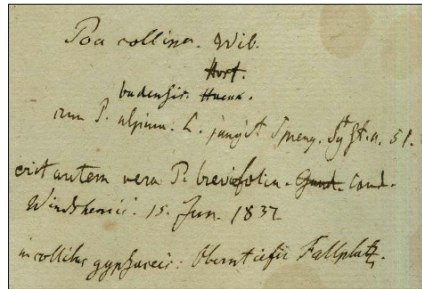 Poa collina. Wib.
Host.
budensis. Haenk.
cum P. alpina. L. jungit Spreng. Syst. n. 51.
erit autem vera P. brevifolia. Gaud. Cand.
Windshemii. 15. Jun. 1837
in collibus gypsaceis: Oberntiefii Fallplatz.